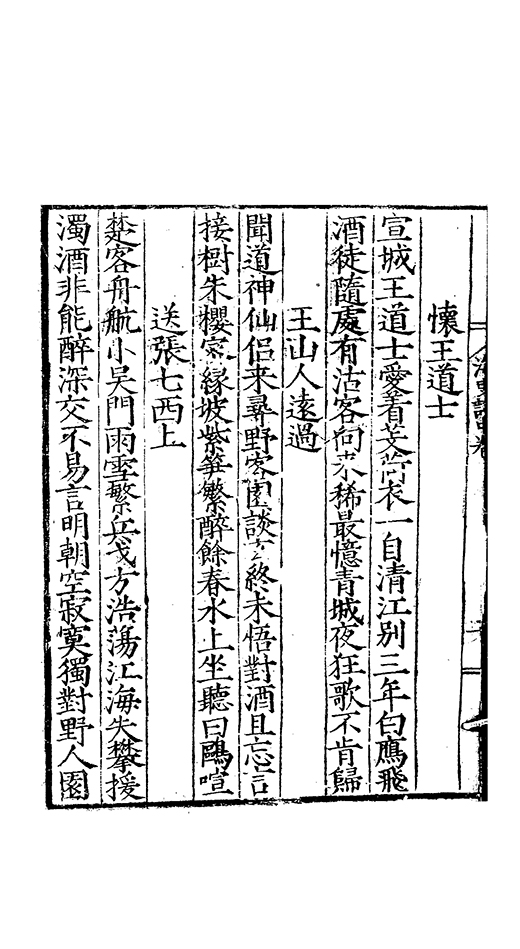 懷王道士
宣城王道士愛着芰荷衣一自清江別三年白鴈飛
酒徒隨處有沽客向来稀最憶青城夜狂歌不肯歸
王山人遠過
聞道神仙侶来尋野客園談玄終未悟對酒且忘言
接樹朱櫻密緣坡紫笋繁醉餘春水上坐聽白鷗喧
送張七西上
楚客舟航小吳門雨雪繁兵戈方浩蕩江海失攀援
濁酒非能醉深交不易言明朝空寂寞獨對野人園